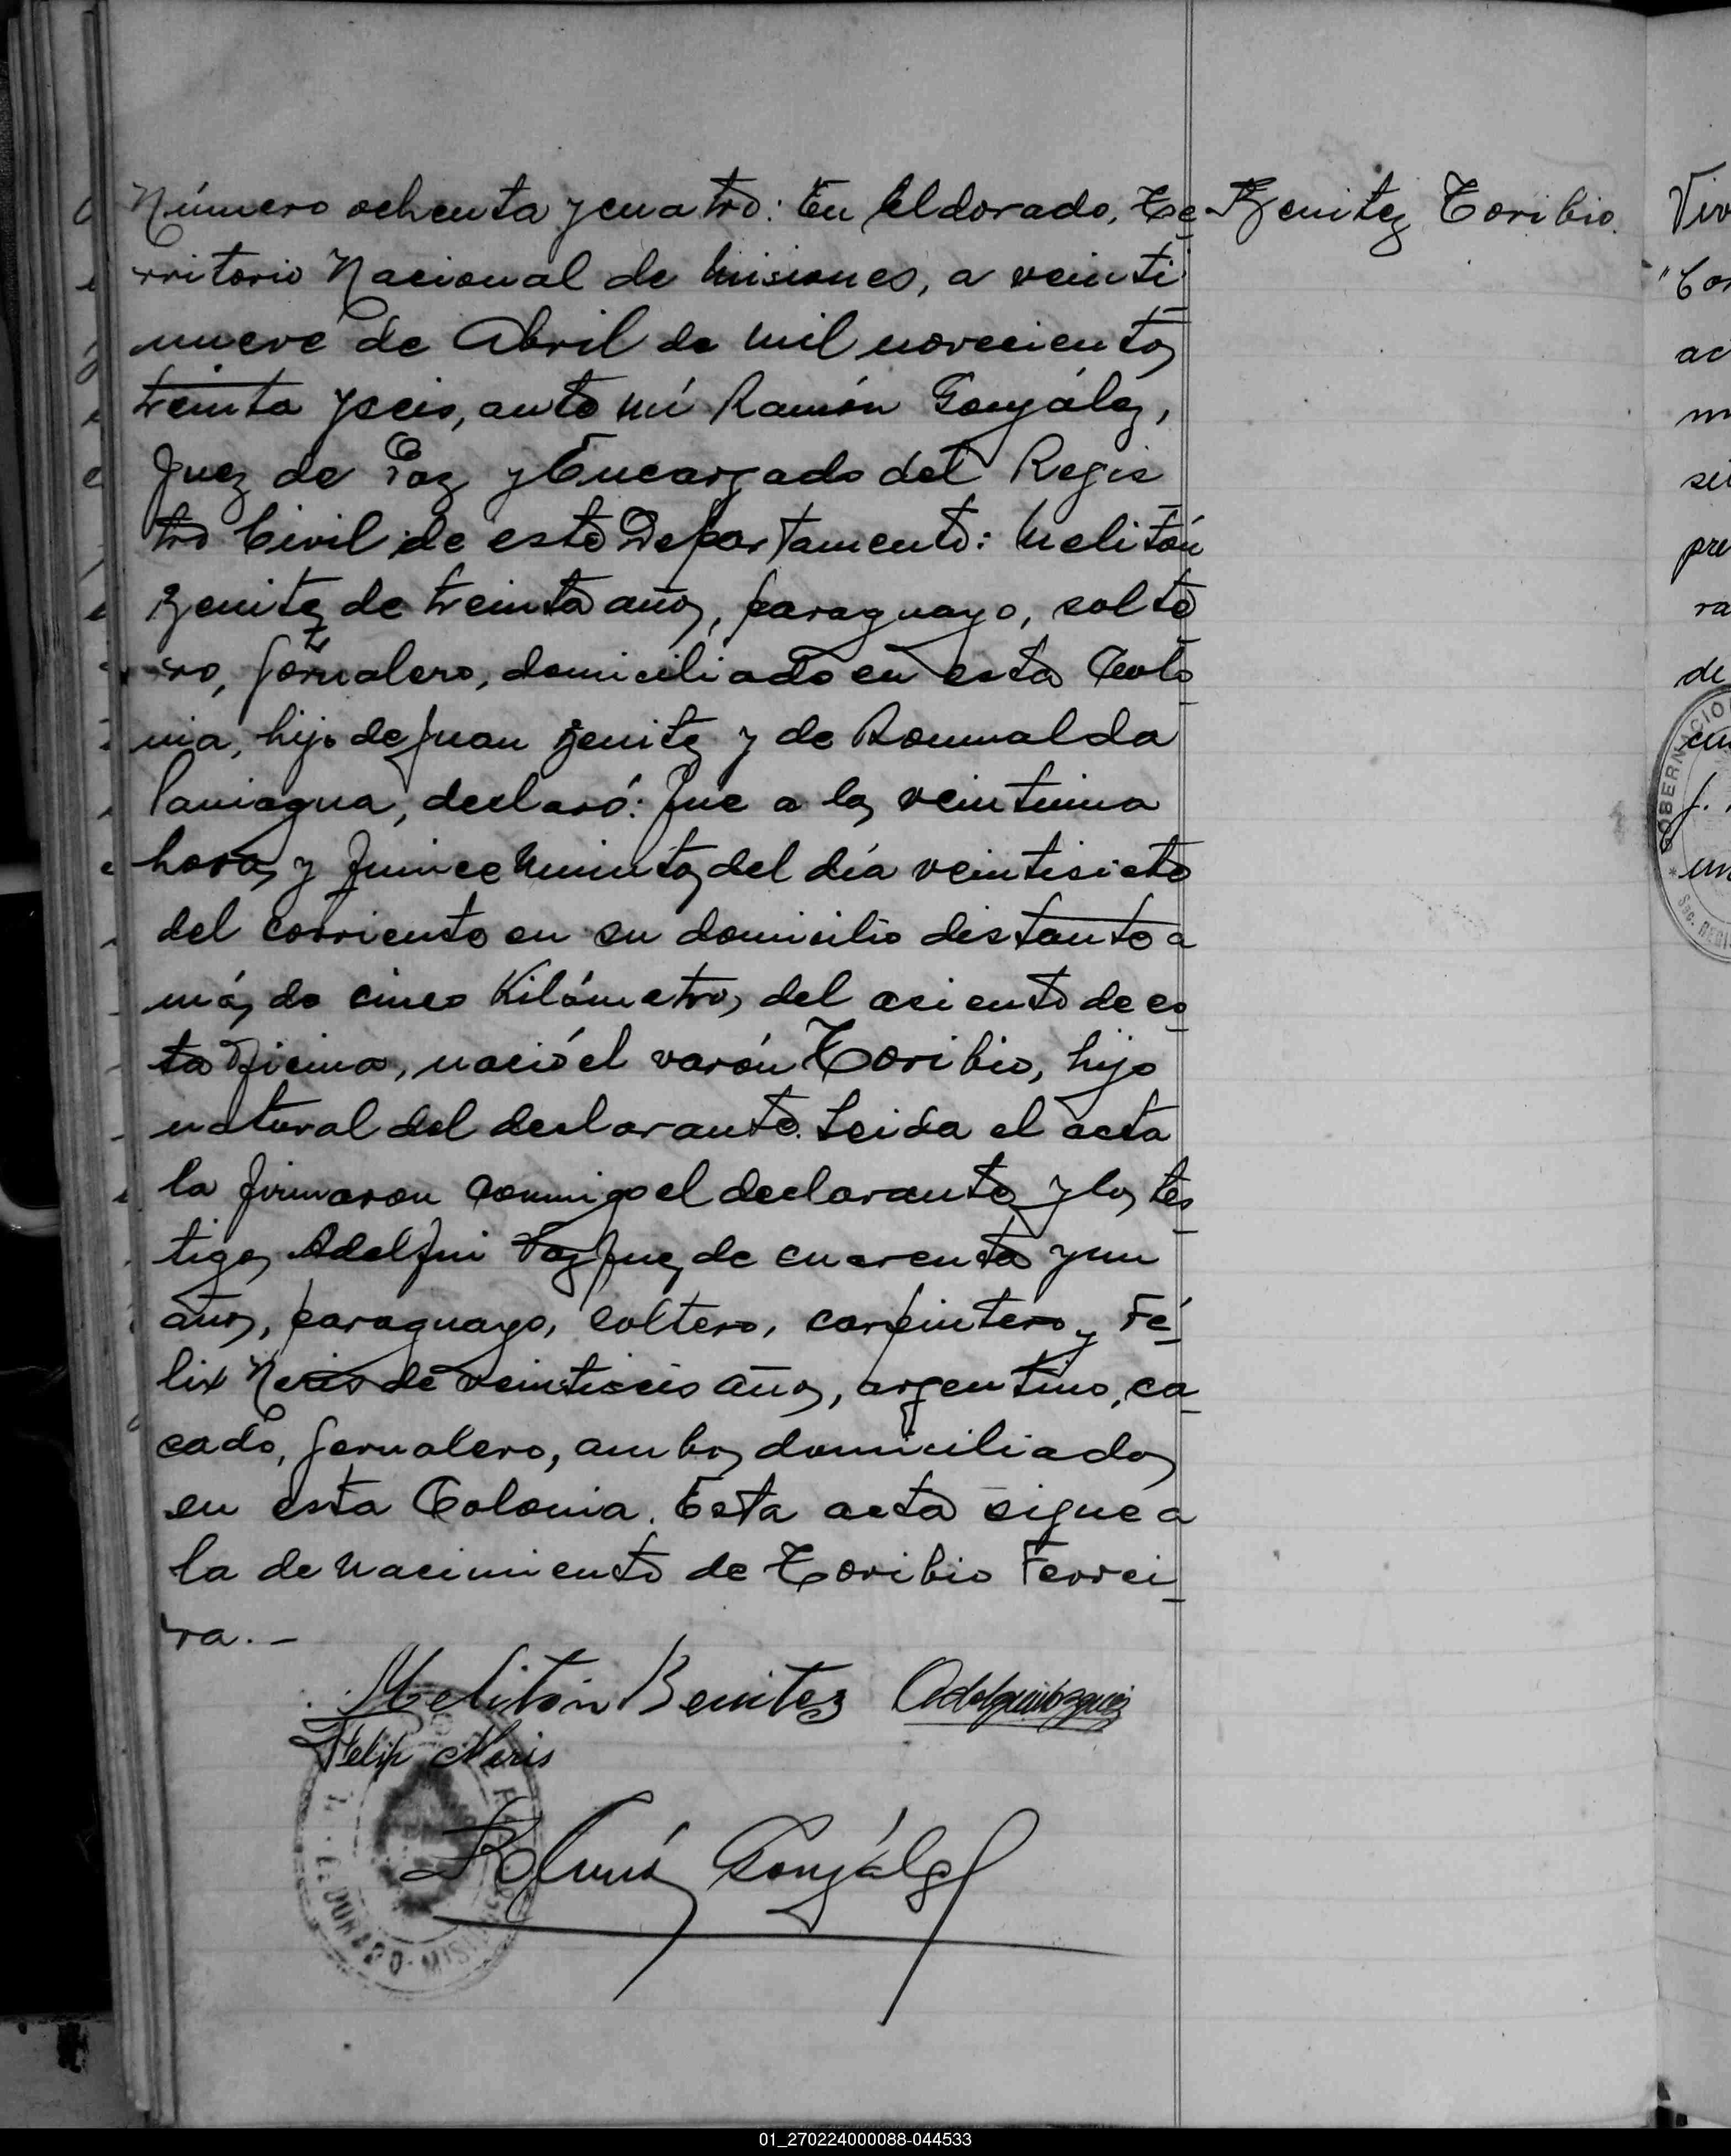 Número ochenta y cuatro: En Eldorado, Te-
rritorio Nacional de Misiones, a veinti
nueve de Abril de mil novecientos
treinta y seis, ante mí Ramón González,
Juez de Paz y Encargado del Regis
tro Civil de este Departamento: Melitón
Benitez de treinta años, paraguayo, solte
ro, jornalero, domiciliado en esta Colo
nia, hijo de Juan Benitez y de Romualda
Paniagua, declaró: Que a las veintiuna
horas y quince minutos del día veintisiete
del corriente en su domicilio distante a
más de cinco Kilómetros del asiento de es
ta Oficina, nació el varón Toribio, hijo
natural del declarante. Leida el acta
la firmaron conmigo el declarante y los tes
tigos Adelqui Vazquez de cuarenta y un
años, paraguayo, soltero, carpintero y Fé
lix Neris de veintiseis años, argentino, ca
sado, jornalero, ambos domiciliados
en esta Colonia. Esta acta sigue a
la de nacimiento de Toribio Ferrei
ra.-
Melitón Benitez
Felix Neris
Ramón González
ELDORADO - MISIONES
Benitez Toribio.
Viv
"Cor
ac
m
se
pre
ra
de
GOBERNACIO
cu
f.
un
Sec. REGI
01_270224000088-044533